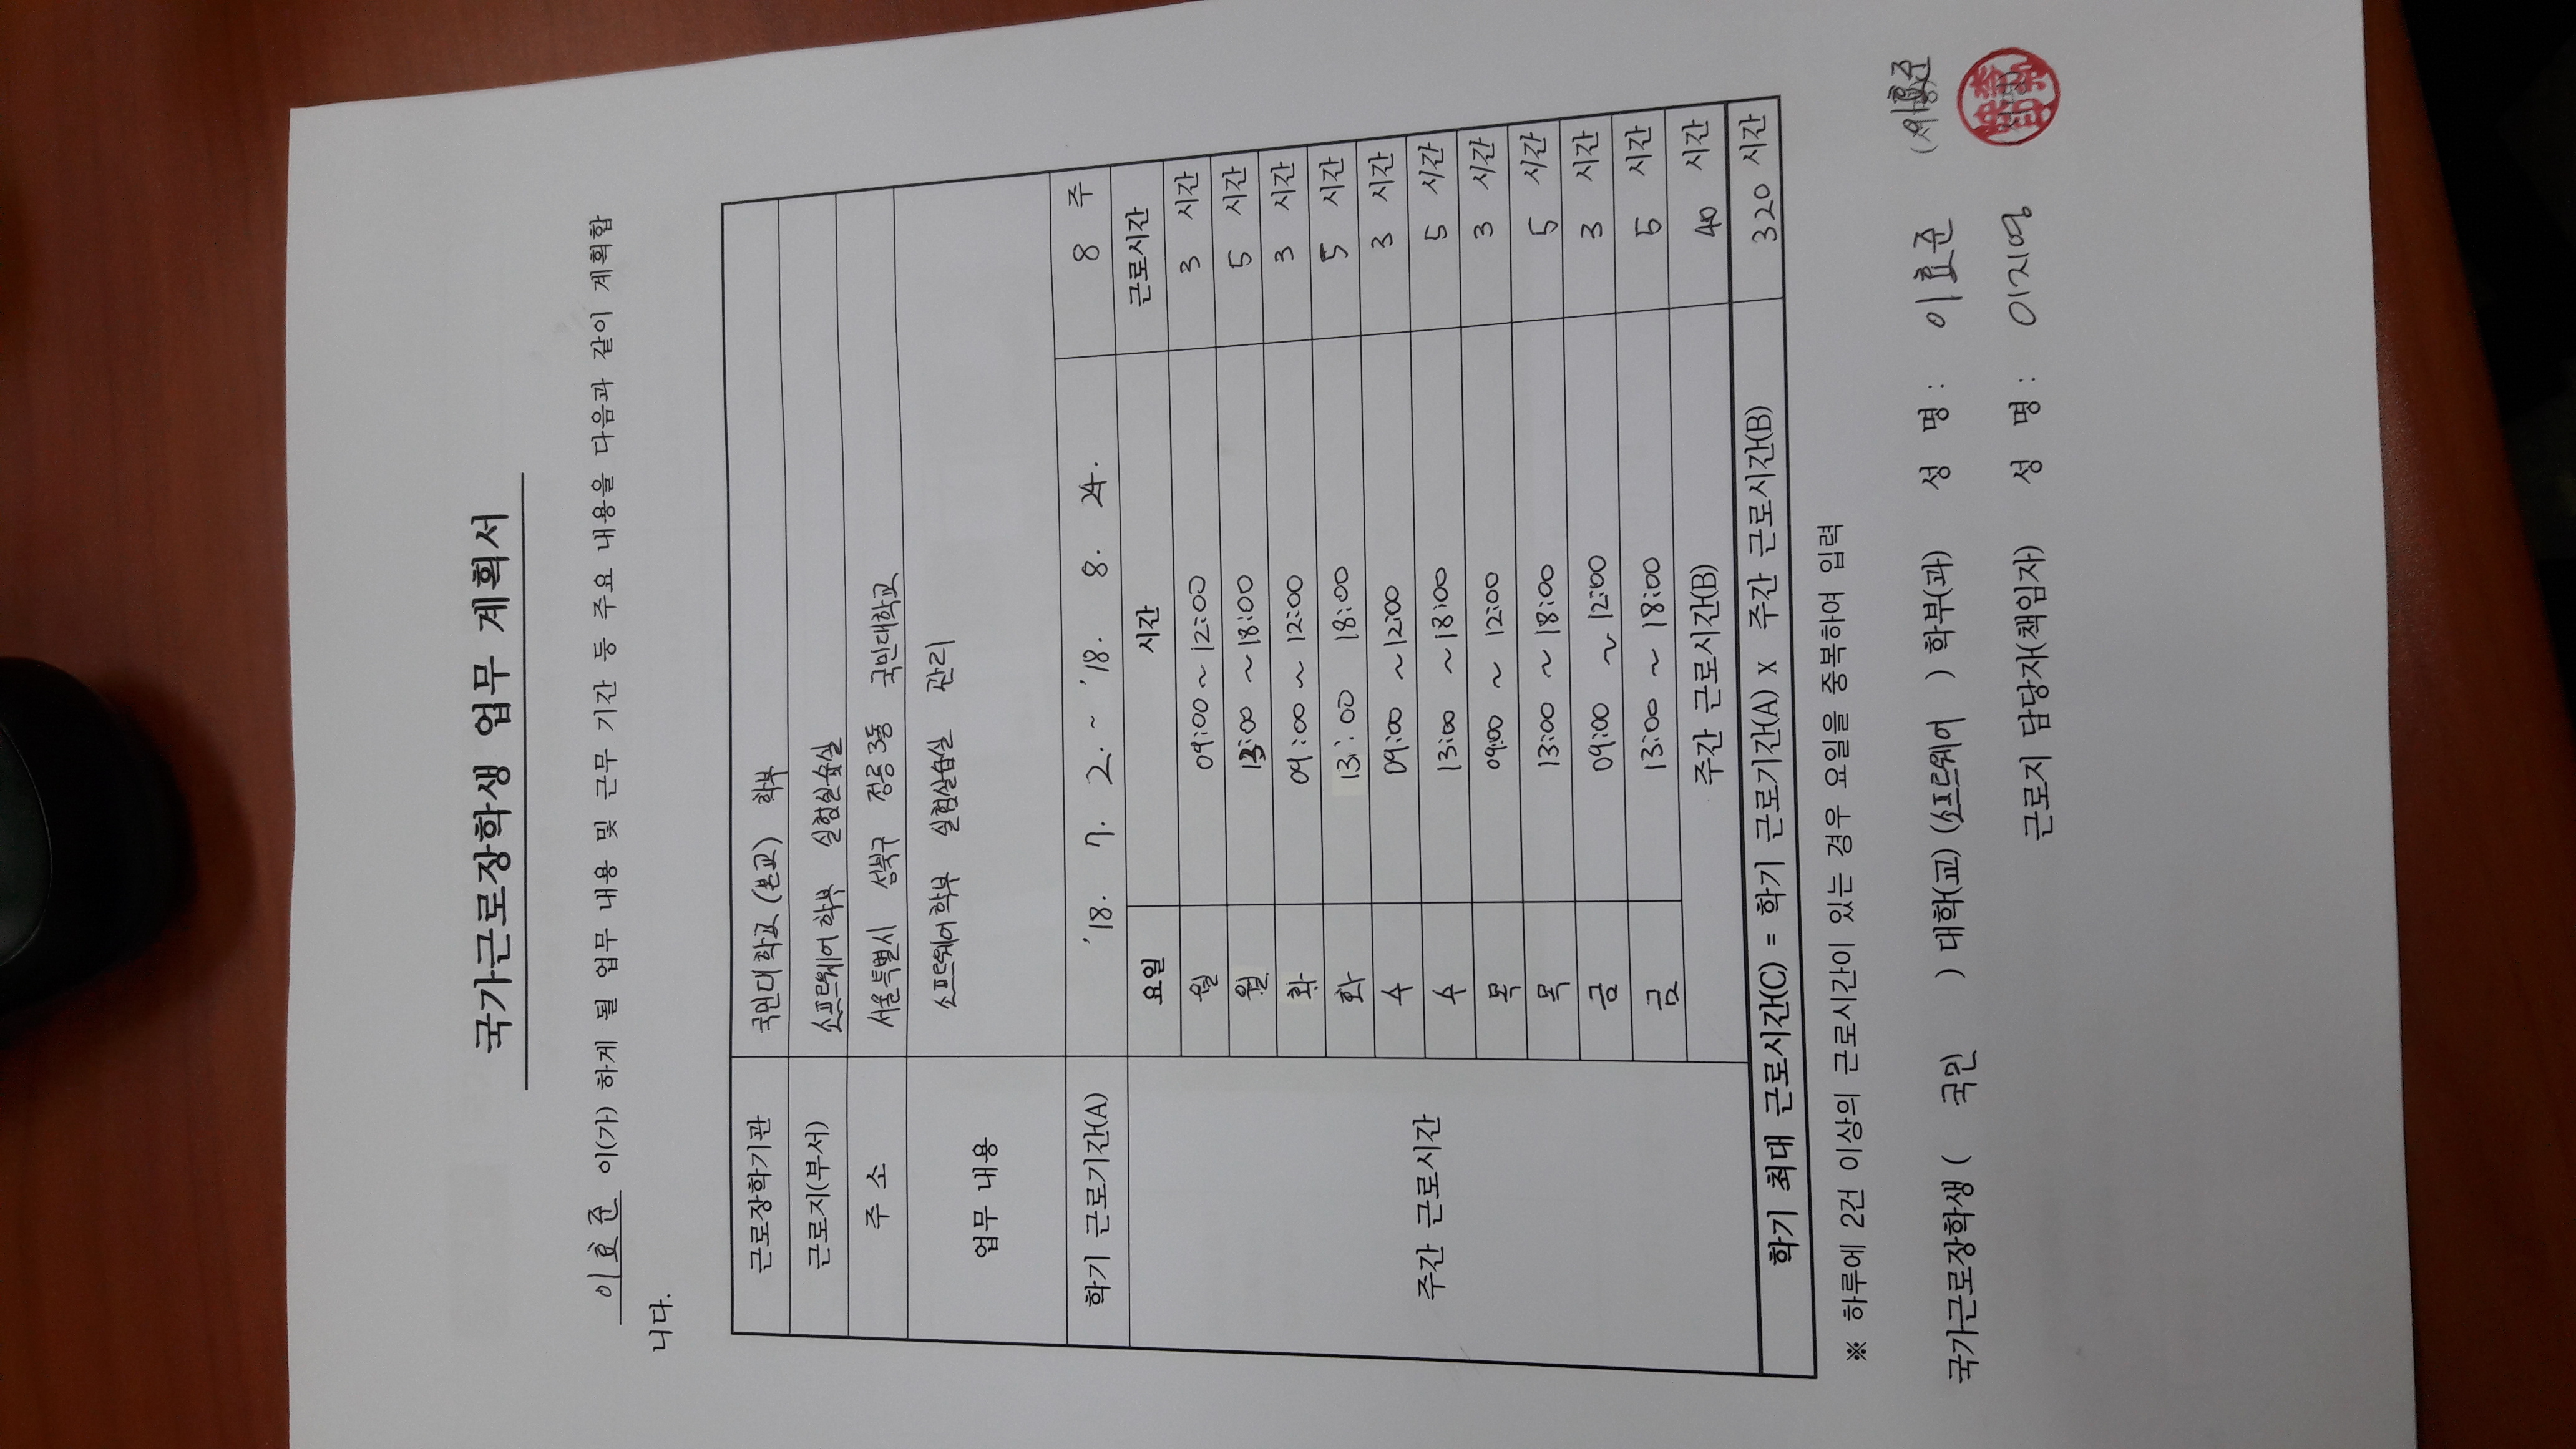 국가근로장학생 업무 계획서
이효준 이(가) 하게 될 업무 내용 및 근무 기간 등 주요 내용을 다음과 같이 계획합
니다.
근로장학기관 국민대학교 (본교) 학부
근로지(부서) 소프트웨어학부 실험실습실
주 소 서울특별시 성북구 정릉3동 국민대학교
업무 내용 소프트웨어학부 실험실습실 관리
학기 근로기간(A) '18. 7. 2. ~ '18. 8. 24. 8 주
주간 근로시간
요일 시간 근로시간
월 09:00 ~ 12:00 3 시간
월 13:00 ~ 18:00 5 시간
화 09:00 ~ 12:00 3 시간
화 13:00 18:00 5 시간
수 09:00 ~ 12:00 3 시간
수 13:00 ~ 18:00 5 시간
목 09:00 ~ 12:00 3 시간
목 13:00 ~ 18:00 5 시간
금 09:00 ~ 12:00 3 시간
금 13:00 ~ 18:00 5 시간
주간 근로시간(B) 40 시간
학기 최대 근로시간(C) = 학기 근로기간(A) x 주간 근로시간(B) 320 시간
※ 하루에 2건 이상의 근로시간이 있는 경우 요일을 중복하여 입력
국가근로장학생 ( 국민 ) 대학(교) (소프트웨어 ) 학부(과) 성 명 : 이효준 이효준
근로지 담당자(책임자) 성 명 : 이지영